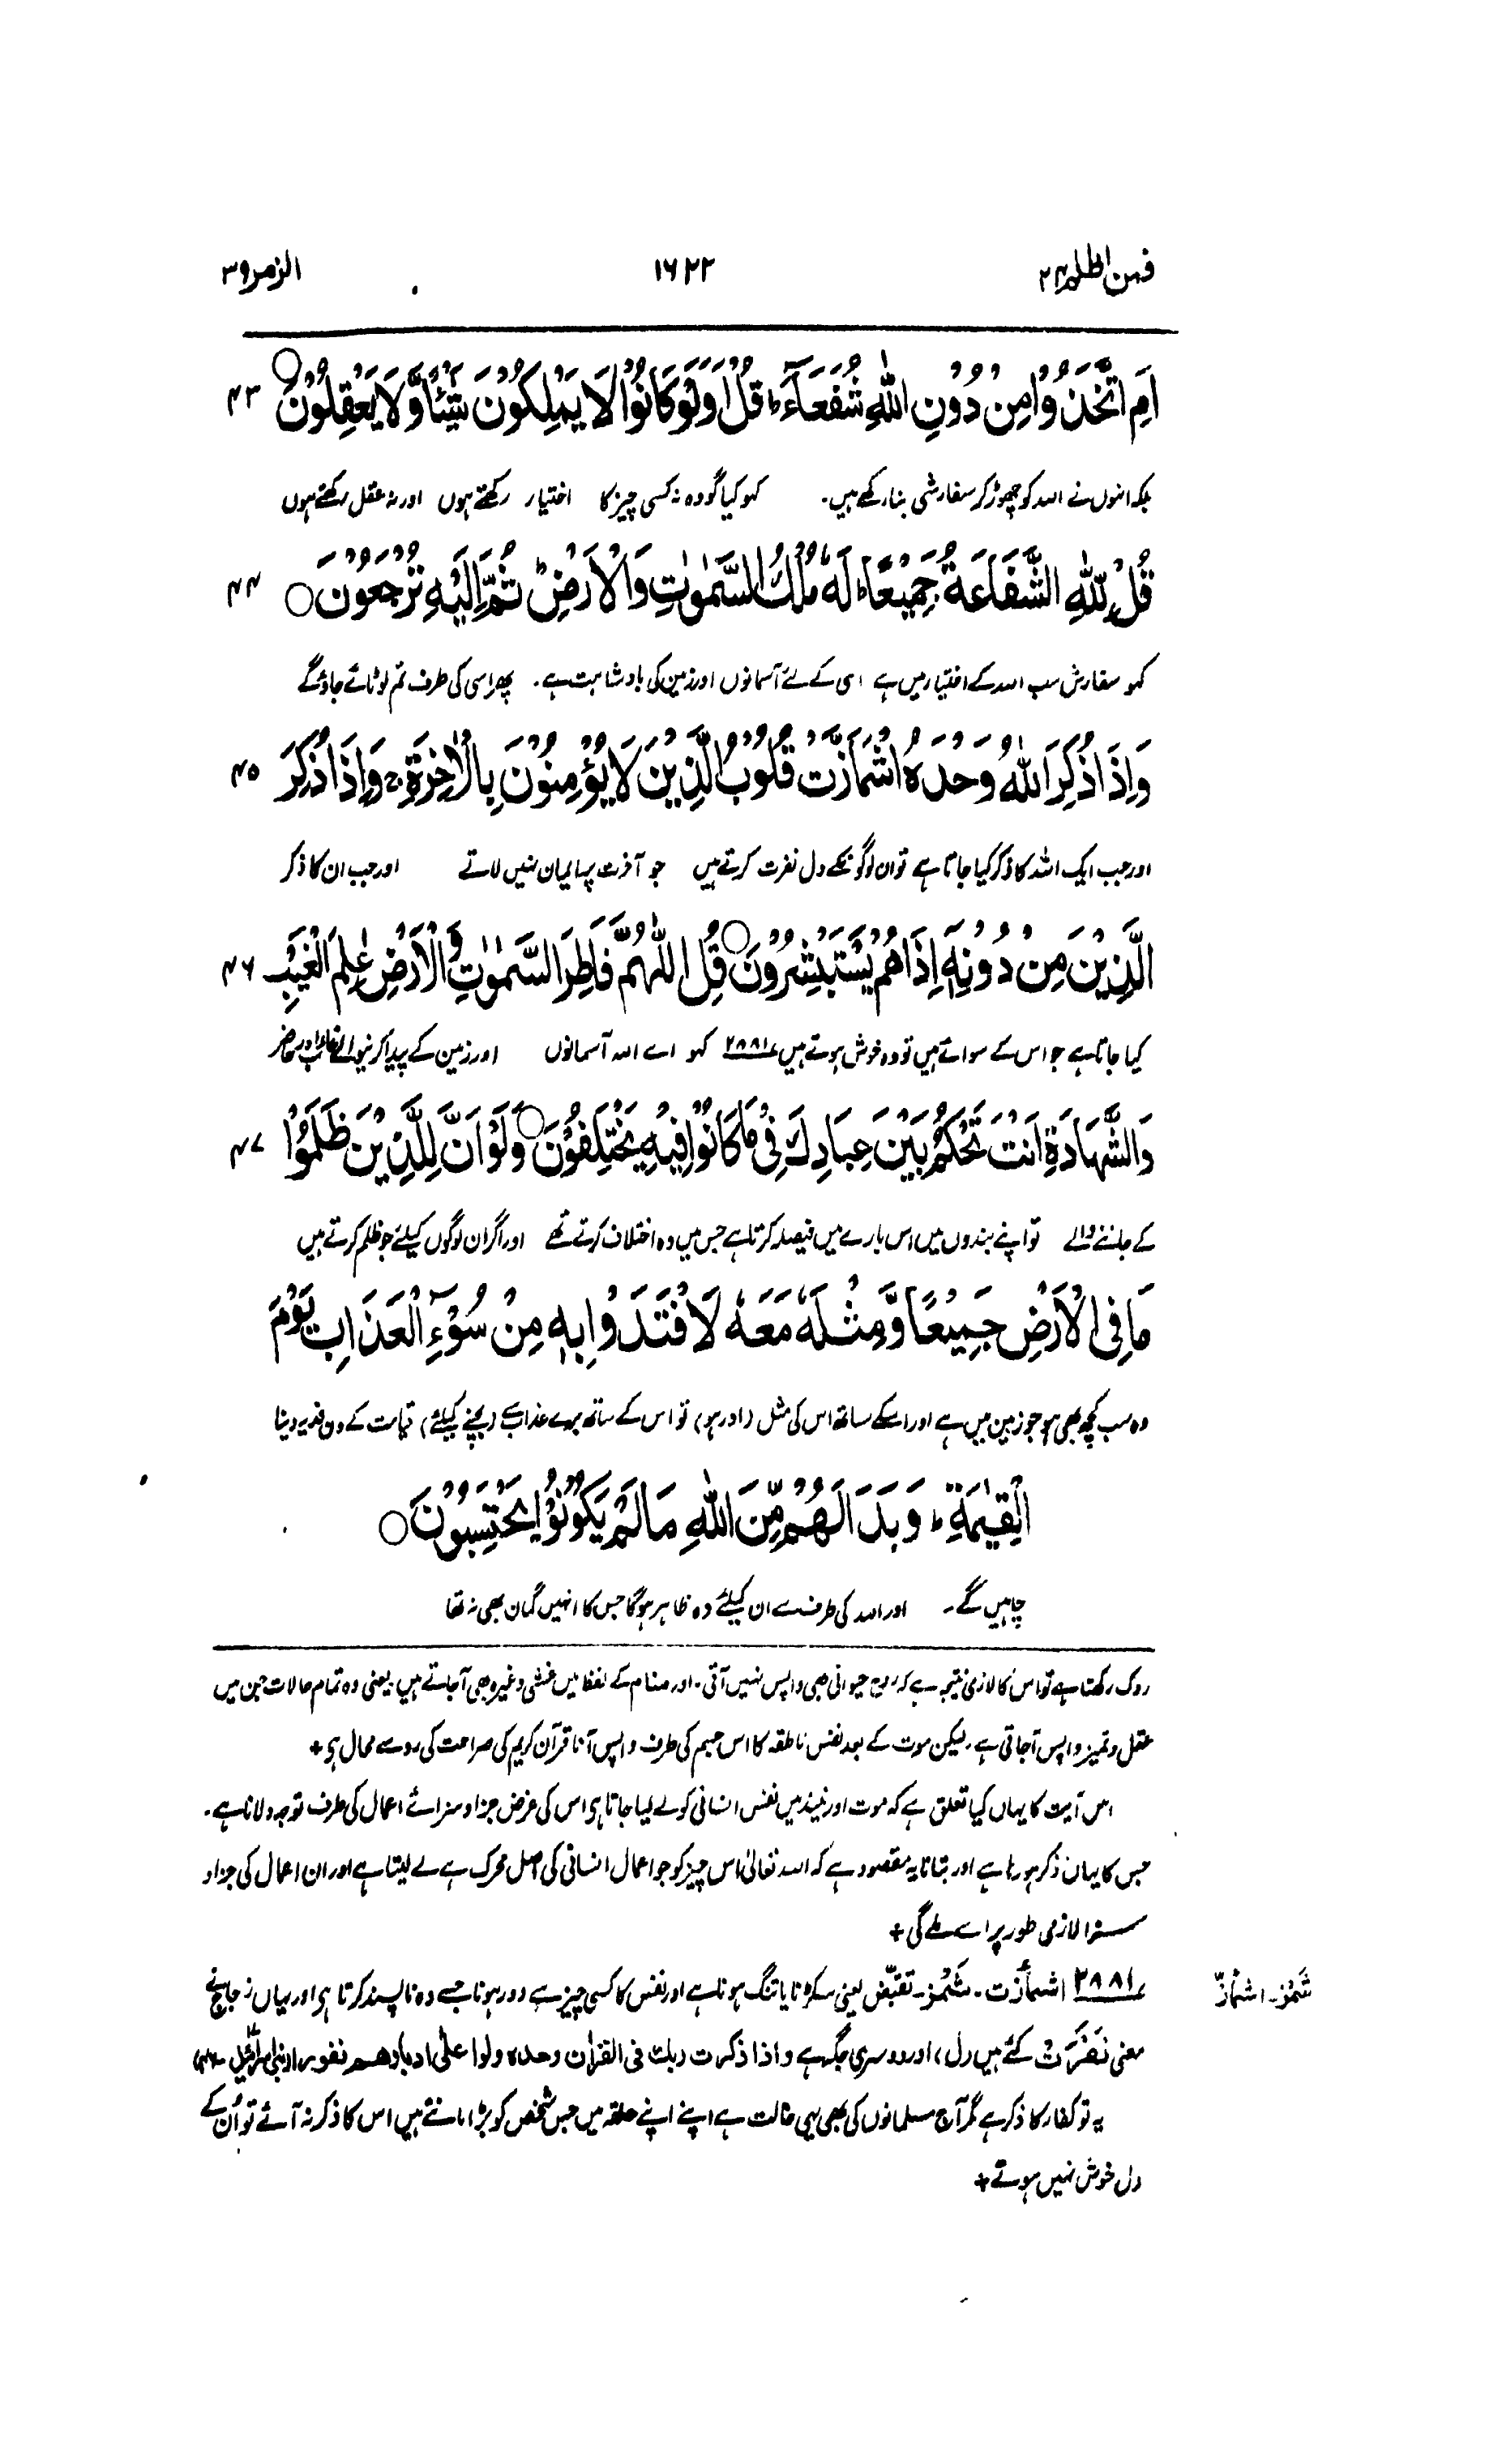 فمن اظلم ۲۴ ۱۶۲۲ الزمر ۳۹
اَمِ اتَّخَذُوْا مِنْ دُوْنِ اللّٰهِ شُفَعَآءَ ؕ قُلْ اَوَلَوْ كَانُوْا لَا يَمْلِكُوْنَ شَيْئًا وَّلَا يَعْقِلُوْنَ ○ ۴۳
بلکہ انہوں نے اللہ کو چھوڑ کر سفارشی بنا رکھے ہیں۔ کہو کیا گو وہ نہ کسی چیز کا اختیار رکھتے ہوں اور نہ عقل رکھتے ہوں
قُلْ لِّلّٰهِ الشَّفَاعَةُ جَمِيْعًا ؕ لَهٗ مُلْكُ السَّمٰوٰتِ وَالْاَرْضِ ؕ ثُمَّ اِلَيْهِ تُرْجَعُوْنَ ○ ۴۴
کہو سفارش سب اللہ کے اختیار میں ہے اسی کے لئے آسمانوں اور زمین کی بادشاہت ہے۔ پھر اسی کی طرف تم لوٹائے جاؤ گے
وَاِذَا ذُكِرَ اللّٰهُ وَحْدَهُ اشْمَاَزَّتْ قُلُوْبُ الَّذِيْنَ لَا يُؤْمِنُوْنَ بِالْاٰخِرَةِ ۚ وَاِذَا ذُكِرَ ۴۵
اور جب ایک اللہ کا ذکر کیا جاتا ہے تو ان لوگوں کے دل نفرت کرتے ہیں جو آخرت پر ایمان نہیں لاتے اور جب ان کا ذکر
الَّذِيْنَ مِنْ دُوْنِهٖٓ اِذَا هُمْ يَسْتَبْشِرُوْنَ ○ قُلِ اللّٰهُمَّ فَاطِرَ السَّمٰوٰتِ وَالْاَرْضِ عٰلِمَ الْغَيْبِ ۴۶
کیا جاتا ہے جو اس کے سوائے ہیں تو وہ خوش ہوتے ہیں ۲۸۸۱ کہو اے اللہ آسمانوں اور زمین کے پیدا کرنیوالے غائب اور حاضر
وَالشَّهَادَةِ اَنْتَ تَحْكُمُ بَيْنَ عِبَادِكَ فِيْ مَا كَانُوْا فِيْهِ يَخْتَلِفُوْنَ ○ وَلَوْ اَنَّ لِلَّذِيْنَ ظَلَمُوْا ۴۷
کے جاننے والے تو اپنے بندوں میں اس بارے میں فیصلہ کرتا ہے جس میں وہ اختلاف کرتے تھے اور اگر ان لوگوں کیلئے جو ظلم کرتے ہیں
مَا فِي الْاَرْضِ جَمِيْعًا وَّمِثْلَهٗ مَعَهٗ لَافْتَدَوْا بِهٖ مِنْ سُوْٓءِ الْعَذَابِ يَوْمَ
وہ سب کچھ بھی ہو جو زمین میں ہے اور اسکے ساتھ اس کی مثل (اور ہو) تو اس کے ساتھ برے عذاب سے (بچنے کیلئے) قیامت کے دن فدیہ دینا
الْقِيٰمَةِ ؕ وَبَدَا لَهُمْ مِّنَ اللّٰهِ مَا لَمْ يَكُوْنُوْا يَحْتَسِبُوْنَ ○
چاہیں گے۔ اور اللہ کی طرف سے ان کیلئے وہ ظاہر ہوگا جس کا انہیں گمان بھی نہ تھا
روک رکھتا ہے تو اس کا لازمی نتیجہ ہے کہ روح حیوانی بھی واپس نہیں آتی۔ اور منام کے لفظ میں غشی وغیرہ بھی آجاتے ہیں۔ یعنی وہ تمام حالات جن میں
عقل و تمیز واپس آجاتی ہے۔ لیکن موت کے بعد نفس ناطقہ کا اس جسم کی طرف واپس آنا قرآن کریم کی صراحت کی رو سے محال ہی +
اس آیت کا یہاں کیا تعلق ہے کہ موت اور نیند میں نفس انسانی کو لے لیا جاتا ہی اس کی غرض جزا و سزائے اعمال کی طرف توجہ دلانا ہے۔
جس کا یہاں ذکر ہو رہا ہے اور بتانا یہ مقصود ہے کہ اللہ تعالیٰ اس چیز کو جو اعمال انسانی کی اصل محرک ہے لے لیتا ہے اور ان اعمال کی جزا و
سزا لازمی طور پر اسے ملے گی +
۲۸۸۱ اشمأزت۔ شَمْز۔ تقبّض یعنی سکڑنا یا تنگ ہونا ہے اور نفس کا کسی چیز سے دور ہونا جسے وہ ناپسند کرتا ہی اور یہاں زجاج نے
شَمْز۔ اشمأزّ
معنی نَفَرَت کئے ہیں (ل) اور دوسری جگہ ہے و اذا ذکرت ربك فی القراٰن وحدہ ولوا علیٰ ادبارھم نفورا (بنی اسرائیل۔۴۶)
یہ تو کفار کا ذکر ہے مگر آج مسلمانوں کی بھی یہی حالت ہے اپنے اپنے حلقہ میں جس شخص کو بڑا مانتے ہیں اس کا ذکر نہ آئے تو اُن کے
دل خوش نہیں ہوتے +